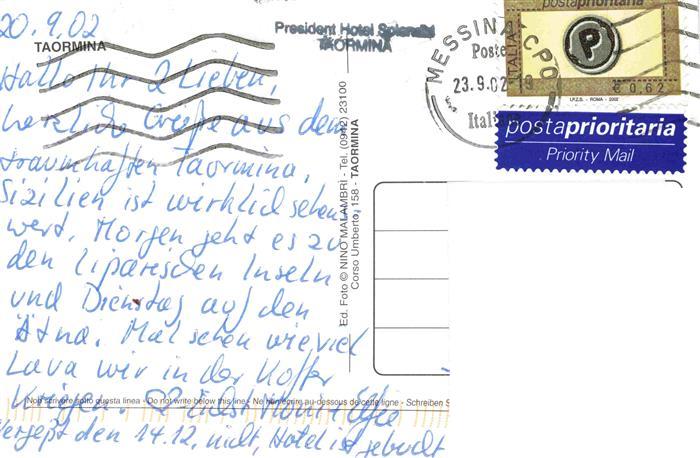 20.9.02
TAORMINA
Hallo Ihr 2 Lieben,
herzliche Grüße aus dem
traumhaften Taormina,
Sizilien ist wirklich sehens
wert. Morgen geht es zu
den liparischen Inseln
und Dienstag auf den
Ätna. Mal sehen wieviel
Lava wir in der Koffer
kriegen.
Vergeßt den 14.12. nicht, Hotel ist gebucht
Non scrivere sotto questa linea - Do not write below this line - Ne rien écrire au-dessous de cette ligne - Schreiben S
President Hotel Splendid
TAORMINA
Ed. Foto © NINO MALAMBRÌ - Tel. (0942) 23100
Corso Umberto, 158 - TAORMINA
MESSINA CPO
Poste
23.9.02 19
Italiane
postaprioritaria
ITALIA
P
€ 0,62
I.P.Z.S. - ROMA - 2002
postaprioritaria
Priority Mail